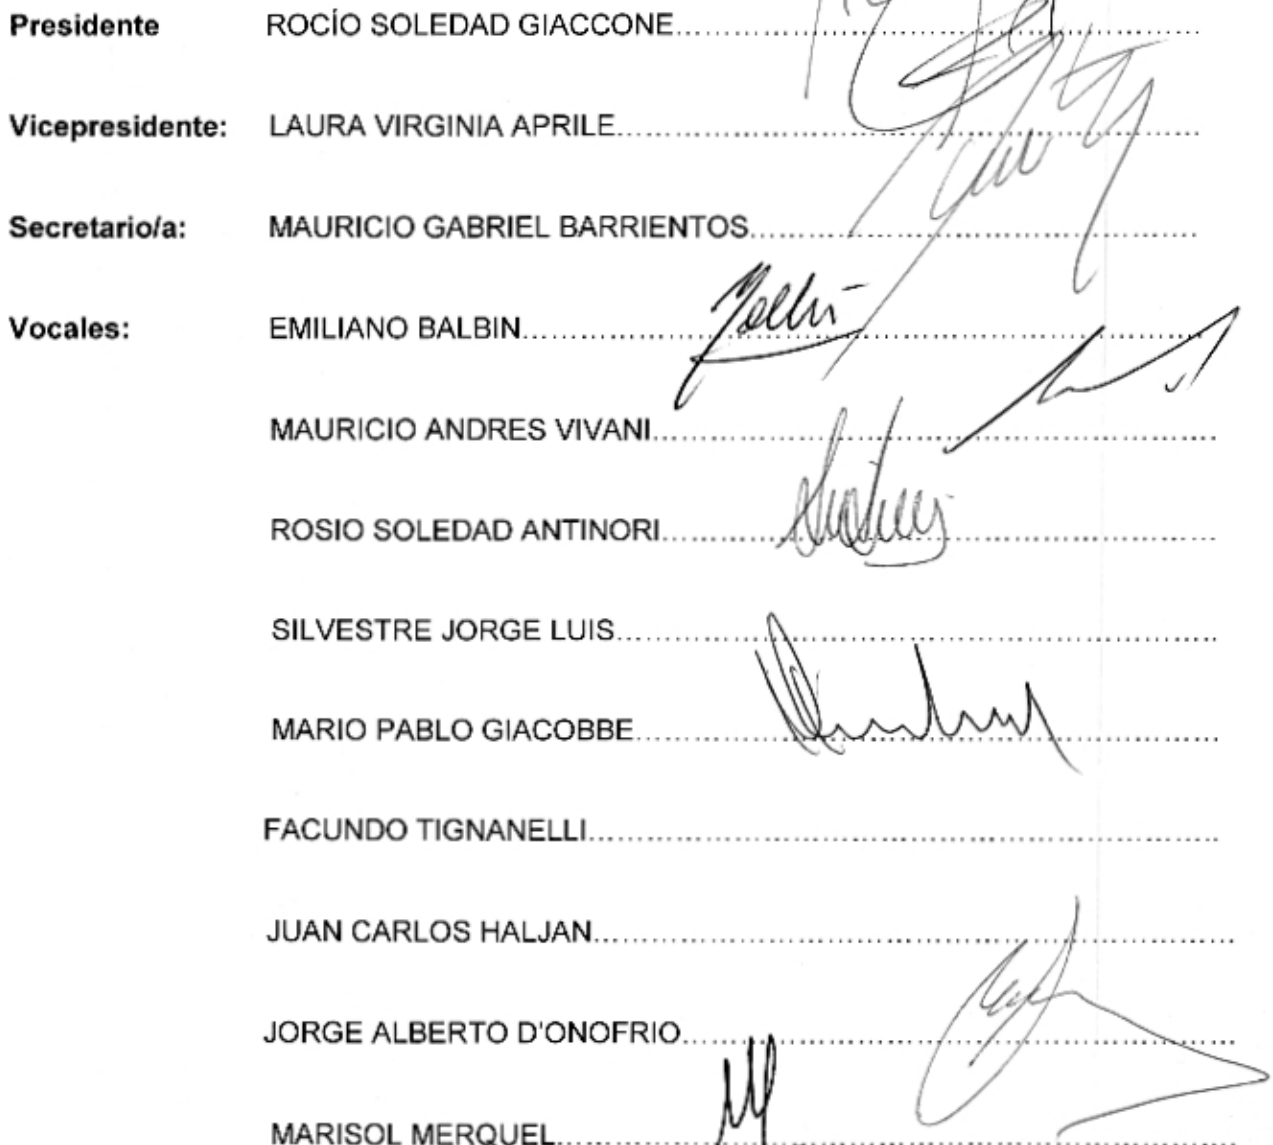 Presidente ROCÍO SOLEDAD GIACCONE
Vicepresidente: LAURA VIRGINIA APRILE
Secretario/a: MAURICIO GABRIEL BARRIENTOS
Vocales: EMILIANO BALBIN
MAURICIO ANDRES VIVANI
ROSIO SOLEDAD ANTINORI
SILVESTRE JORGE LUIS
MARIO PABLO GIACOBBE
FACUNDO TIGNANELLI
JUAN CARLOS HALJAN
JORGE ALBERTO D'ONOFRIO
MARISOL MERQUEL